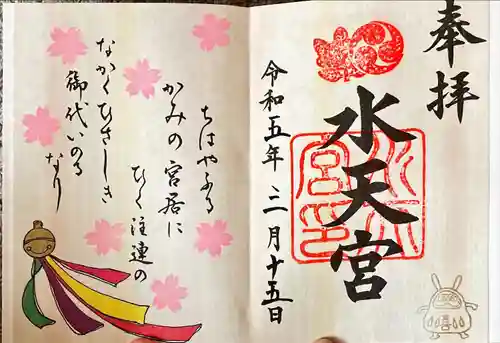 奉拝
水天宮
令和五年三月十五日
ちはやふる
かみの宮居に
ひく注連の
なかくひさしき
御代いのるなり
水天宮印
喜